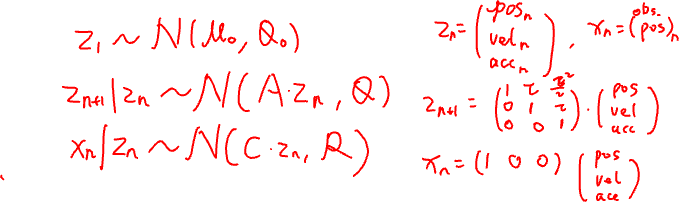 z₁ ~ N(μ₀, Q₀)
zₙ₊₁|zₙ ~ N(A·zₙ, Q)
xₙ|zₙ ~ N(C·zₙ, R)
zₙ = (posₙ velₙ accₙ), xₙ = (obs. pos)ₙ
zₙ₊₁ = (1 τ τ²/2 0 1 τ 0 0 1) · (pos vel acc)
xₙ = (1 0 0) (pos vel acc)